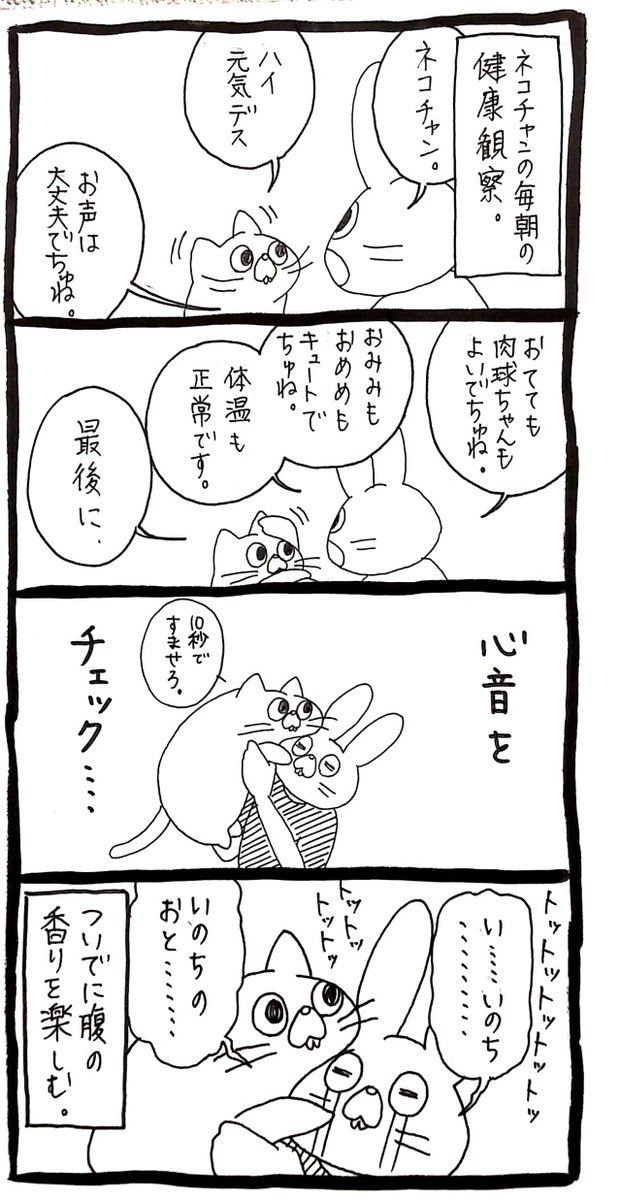 ネコチャンの毎朝の
健康観察。
ネコチャン。
ハイ
元気デス
お声は
大丈夫でちゅね。
おてても
肉球ちゃんも
よいでちゅね。
おみみも
おめめも
キュートで
ちゅね。
体温も
正常です。
最後に、
心音を
チェック……
10秒で
すませろ。
トットットットットッ
い……いのち
………
トットッ
トットッ
いのちの
おと………
ついでに腹の
香りを楽しむ。